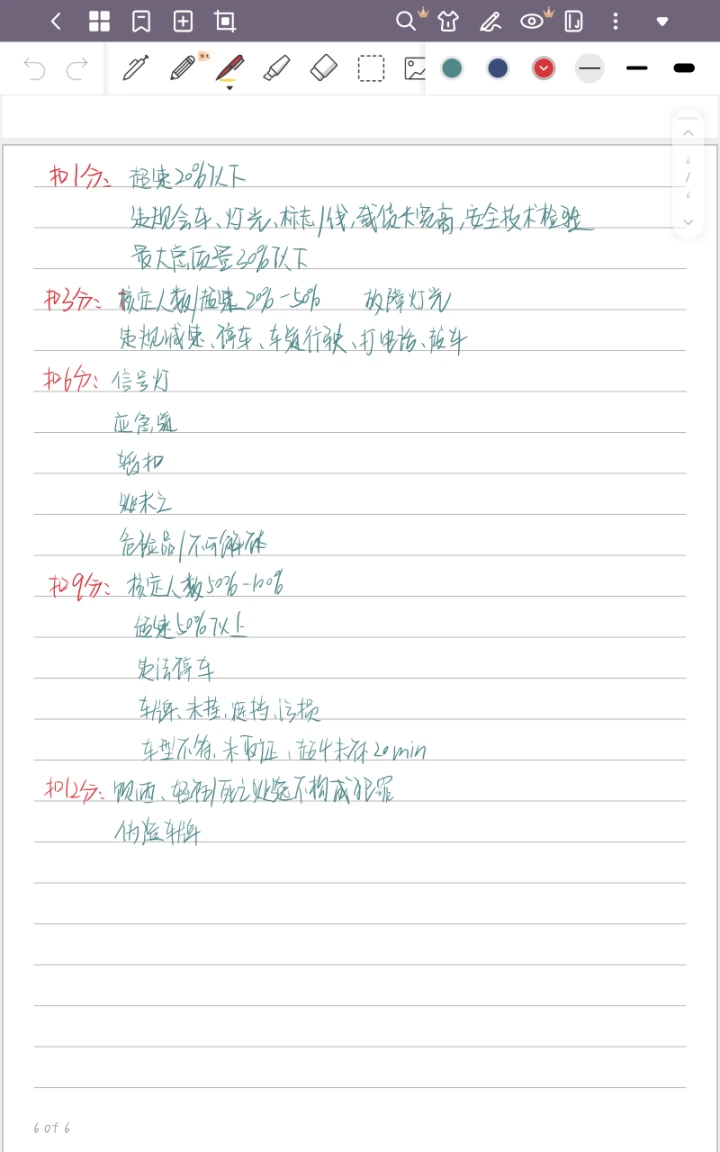 扣1分： 超速20%以下
违规会车、灯光、标志/线,载货长宽高,安全技术检验
最大总质量30%以下
扣3分： 核定人数/超速20%-50% 故障灯光
违规减速、停车、车道行驶、打电话、超车
扣6分： 信号灯
应急道
暂扣
危险品/不可解体
扣9分： 核定人数50%-100%
超速50%以上
违法停车
车牌、未挂、遮挡、污损
车型不符、未取证、超4未休20min
扣12分： 顺酒、轻伤/死亡处逃不构成犯罪
伪造车牌
6 of 6